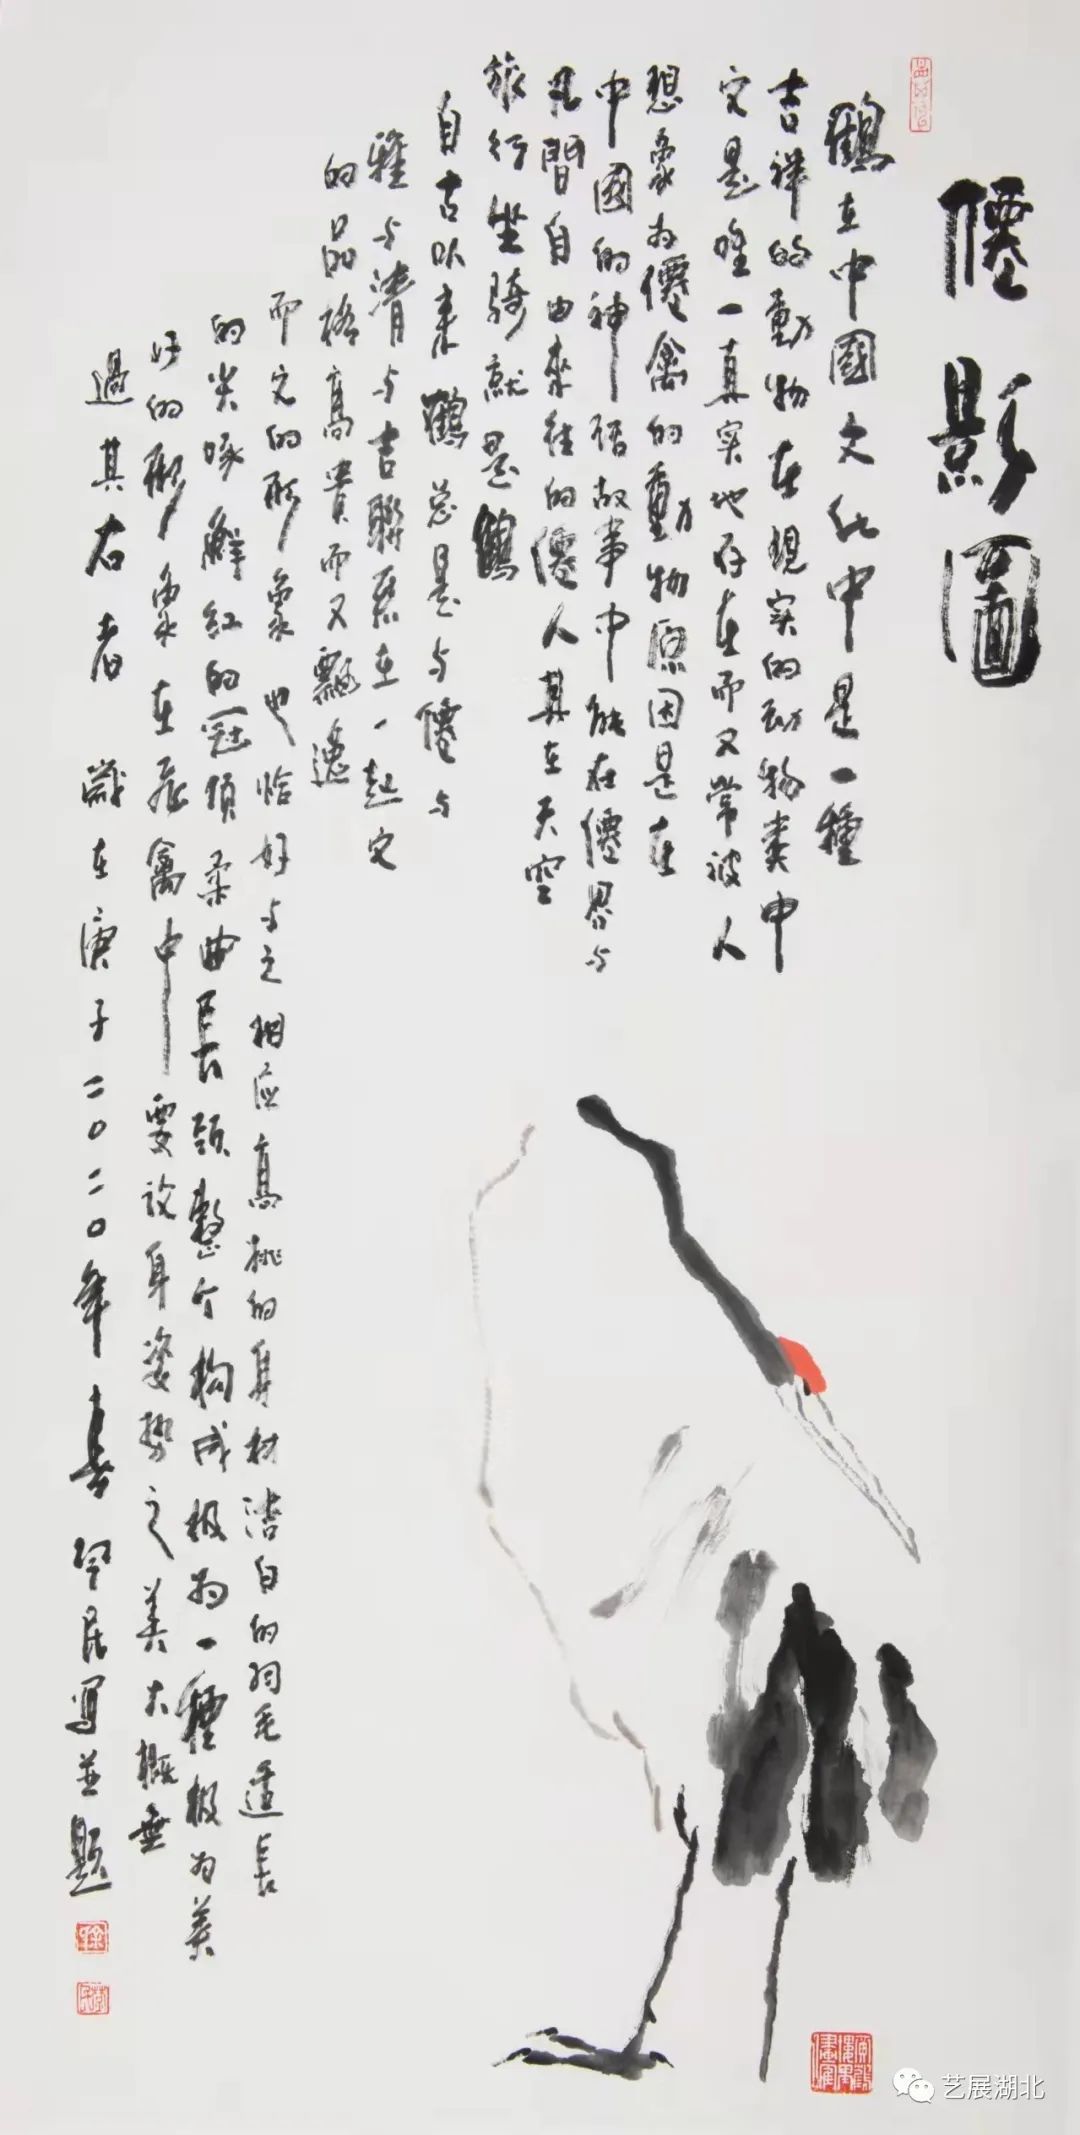 僊影圖
鶴在中國文化中是一種
吉祥的動物在現实的动物类中
它是唯一真实地存在而又常被人
想象为僊禽的動物原因是在
中國的神话故事中能在僊界与
凡間自由来往的僊人其在天空
旅行坐騎就是鶴
自古以来鶴总是与僊与
雅与清与吉聯系在一起它
的品格高貴而又飄逸
而它的形象也恰好与之相应高挑的身材洁白的羽毛适長
的尖喙鮮红的冠顶柔曲長頸整个构成极为一種极为美
好的形象在飛禽中要论身姿势之美大概無
過其右者 歲在庚子二〇二〇年春 居寫並題
艺展湖北